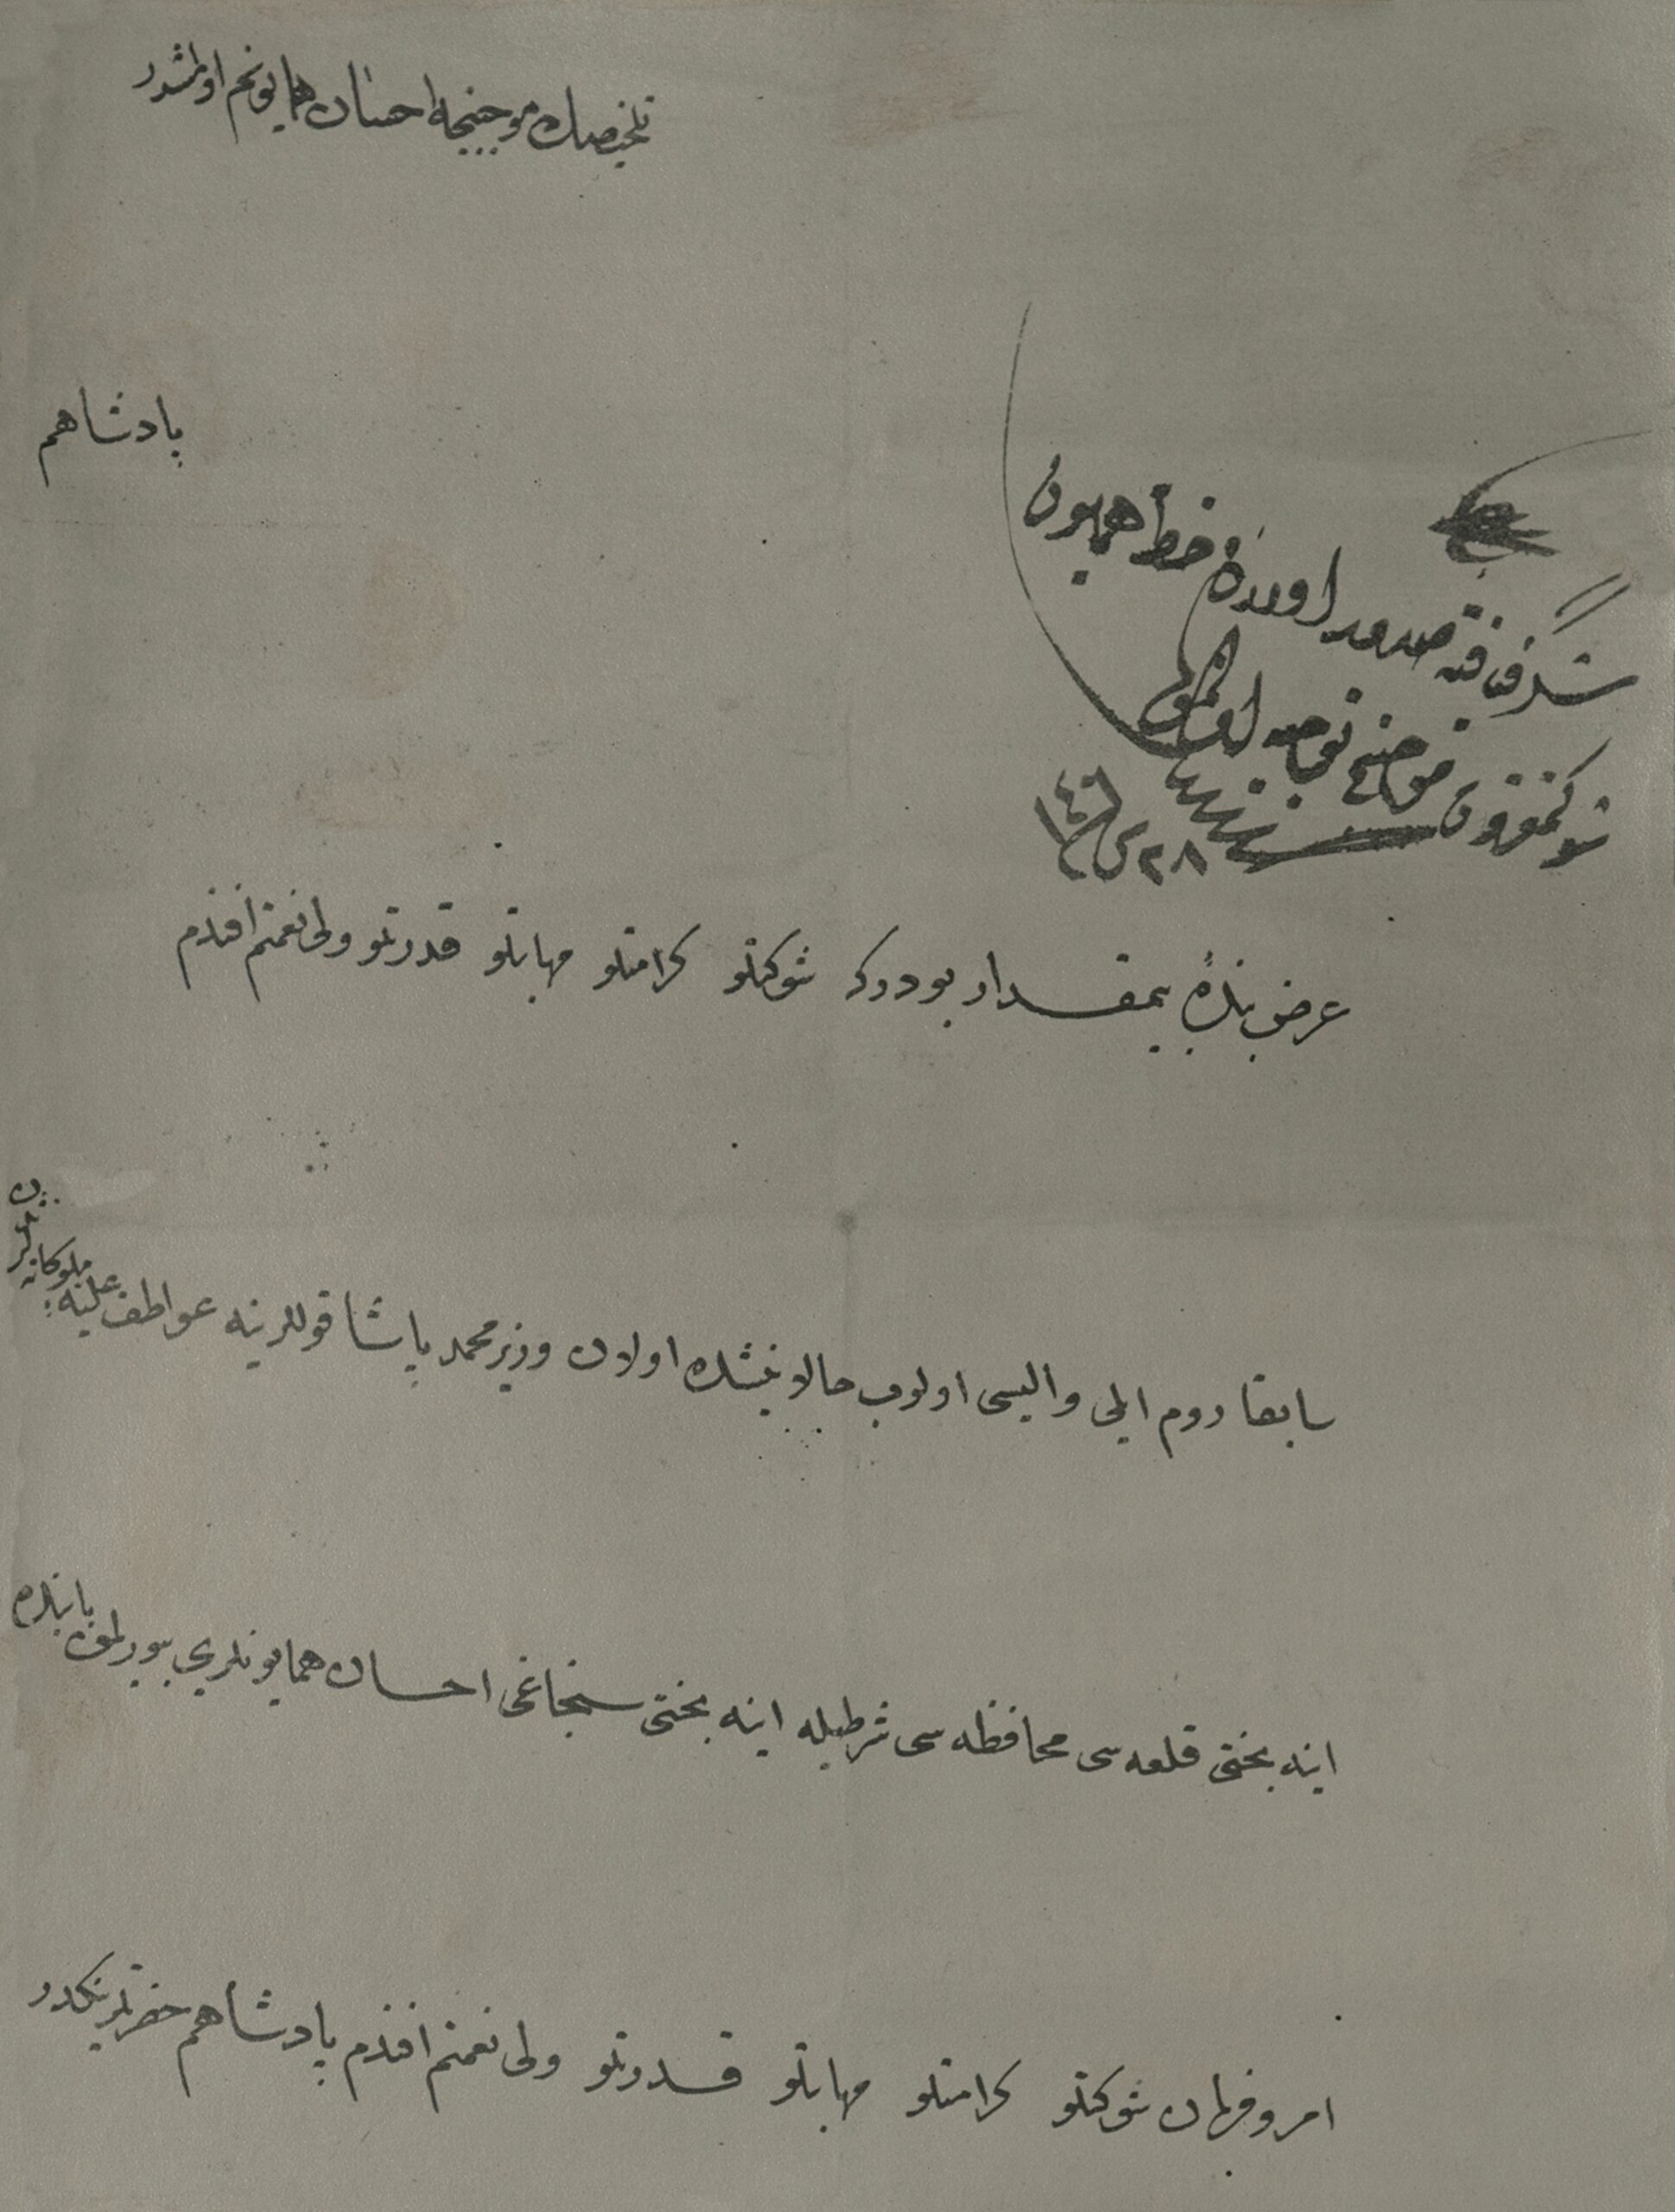 تلخیصك موجبنجه احسان همایونم اولمشدر
پادشاهم
صدور اولان خط همایون
شوكتمقرون موجبنجه توجیه اولنمق
٢٨
عرض بندهٔ بیمقدار بودركه شوكتلو كرامتلو مهابتلو قدرتلو ولی نعمتم افندم
سابقا روم ایلی والیسی اولوب حالا نیشده اولان وزیر محمد پاشا قوللرینه عواطف علیهٔ ملوكانه لرندن
اینه بختی قلعه سی محافظه سی شرطیله اینه بختی سنجاغی احسان همایونلری بیورلمق بابنده
امر و فرمان شوكتلو كرامتلو مهابتلو قدرتلو ولی نعمتم افندم پادشاهم حضرتلرینكدر